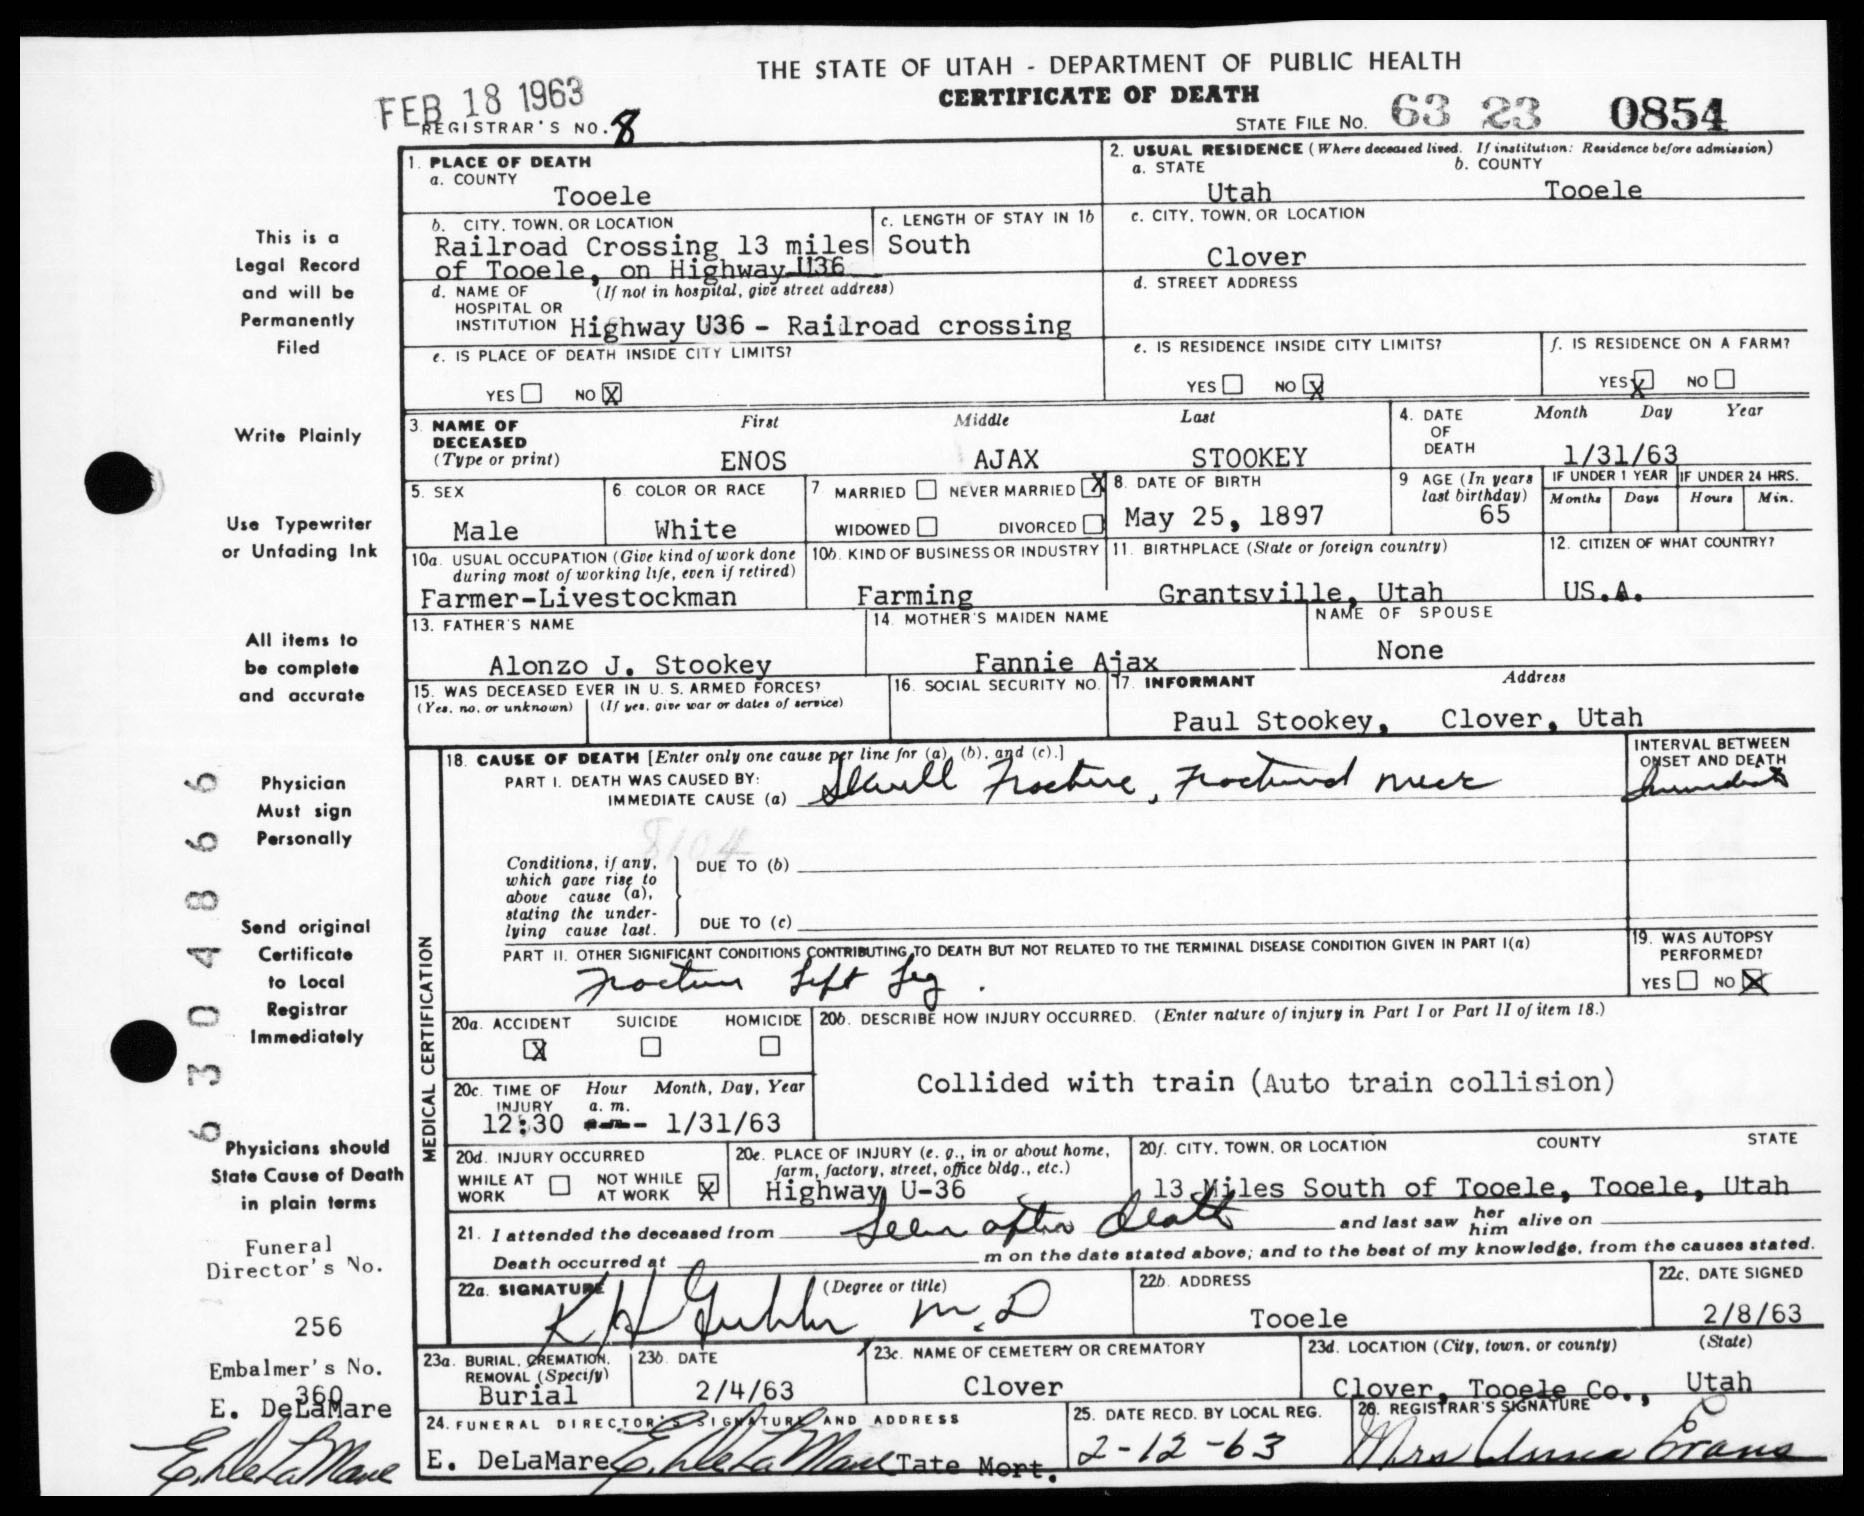 THE STATE OF UTAH - DEPARTMENT OF PUBLIC HEALTH
CERTIFICATE OF DEATH
FEB 18 1963
REGISTRAR'S NO. 8
STATE FILE NO. 63 23 0854
1. PLACE OF DEATH
a. COUNTY
Tooele
2. USUAL RESIDENCE (Where deceased lived. If institution: Residence before admission)
a. STATE b. COUNTY
Utah Tooele
b. CITY, TOWN, OR LOCATION c. LENGTH OF STAY IN 1b
Railroad Crossing 13 miles South
of Tooele, on Highway U36
c. CITY, TOWN, OR LOCATION
Clover
d. NAME OF (If not in hospital, give street address)
HOSPITAL OR
INSTITUTION Highway U36 - Railroad crossing
d. STREET ADDRESS
e. IS PLACE OF DEATH INSIDE CITY LIMITS?
YES NO X
e. IS RESIDENCE INSIDE CITY LIMITS?
YES NO X
f. IS RESIDENCE ON A FARM?
YES X NO
3. NAME OF DECEASED (Type or print)
First Middle Last
ENOS AJAX STOOKEY
4. DATE OF DEATH Month Day Year
1/31/63
5. SEX
Male
6. COLOR OR RACE
White
7 MARRIED NEVER MARRIED X
WIDOWED DIVORCED
8. DATE OF BIRTH
May 25, 1897
9 AGE (In years last birthday)
65
IF UNDER 1 YEAR IF UNDER 24 HRS.
Months Days Hours Min.
10a. USUAL OCCUPATION (Give kind of work done
during most of working life, even if retired)
Farmer-Livestockman
10b. KIND OF BUSINESS OR INDUSTRY
Farming
11. BIRTHPLACE (State or foreign country)
Grantsville, Utah
12. CITIZEN OF WHAT COUNTRY?
US.A.
13. FATHER'S NAME
Alonzo J. Stookey
14. MOTHER'S MAIDEN NAME
Fannie Ajax
NAME OF SPOUSE
None
15. WAS DECEASED EVER IN U. S. ARMED FORCES?
(Yes, no, or unknown) (If yes, give war or dates of service)
16. SOCIAL SECURITY NO.
17. INFORMANT Address
Paul Stookey, Clover, Utah
MEDICAL CERTIFICATION
18. CAUSE OF DEATH [Enter only one cause per line for (a), (b), and (c).]
PART I. DEATH WAS CAUSED BY:
IMMEDIATE CAUSE (a) Skull Fracture, Fractured neck
INTERVAL BETWEEN
ONSET AND DEATH
Immediate
8104
Conditions, if any,
which gave rise to
above cause (a),
stating the under-
lying cause last.
DUE TO (b)
DUE TO (c)
PART II. OTHER SIGNIFICANT CONDITIONS CONTRIBUTING TO DEATH BUT NOT RELATED TO THE TERMINAL DISEASE CONDITION GIVEN IN PART I(a)
Fracture Left Leg.
19. WAS AUTOPSY
PERFORMED?
YES NO X
20a. ACCIDENT SUICIDE HOMICIDE
X
20b. DESCRIBE HOW INJURY OCCURRED. (Enter nature of injury in Part I or Part II of item 18.)
Collided with train (Auto train collision)
20c. TIME OF INJURY Hour Month, Day, Year
a. m.
12:30 1/31/63
20d. INJURY OCCURRED
WHILE AT WORK NOT WHILE AT WORK X
20e. PLACE OF INJURY (e. g., in or about home,
farm, factory, street, office bldg., etc.)
Highway U-36
20f. CITY, TOWN, OR LOCATION COUNTY STATE
13 Miles South of Tooele, Tooele, Utah
21. I attended the deceased from Seen after death and last saw her him alive on
Death occurred at m on the date stated above; and to the best of my knowledge, from the causes stated.
22a. SIGNATURE (Degree or title)
M.D
22b. ADDRESS
Tooele
22c. DATE SIGNED
2/8/63
23a. BURIAL, CREMATION,
REMOVAL (Specify)
Burial
23b. DATE
2/4/63
23c. NAME OF CEMETERY OR CREMATORY
Clover
23d. LOCATION (City, town, or county) (State)
Clover, Tooele Co., Utah
24. FUNERAL DIRECTOR'S SIGNATURE AND ADDRESS
E. DeLaMare E. DeLaMare Tate Mort.
25. DATE RECD. BY LOCAL REG.
2-12-63
26. REGISTRAR'S SIGNATURE
Mrs Anna Evans
This is a
Legal Record
and will be
Permanently
Filed
Write Plainly
Use Typewriter
or Unfading Ink
All items to
be complete
and accurate
Physician
Must sign
Personally
Send original
Certificate
to Local
Registrar
Immediately
Physicians should
State Cause of Death
in plain terms
6304866
Funeral
Director's No.
256
Embalmer's No.
360
E. DeLaMare
E. DeLaMare